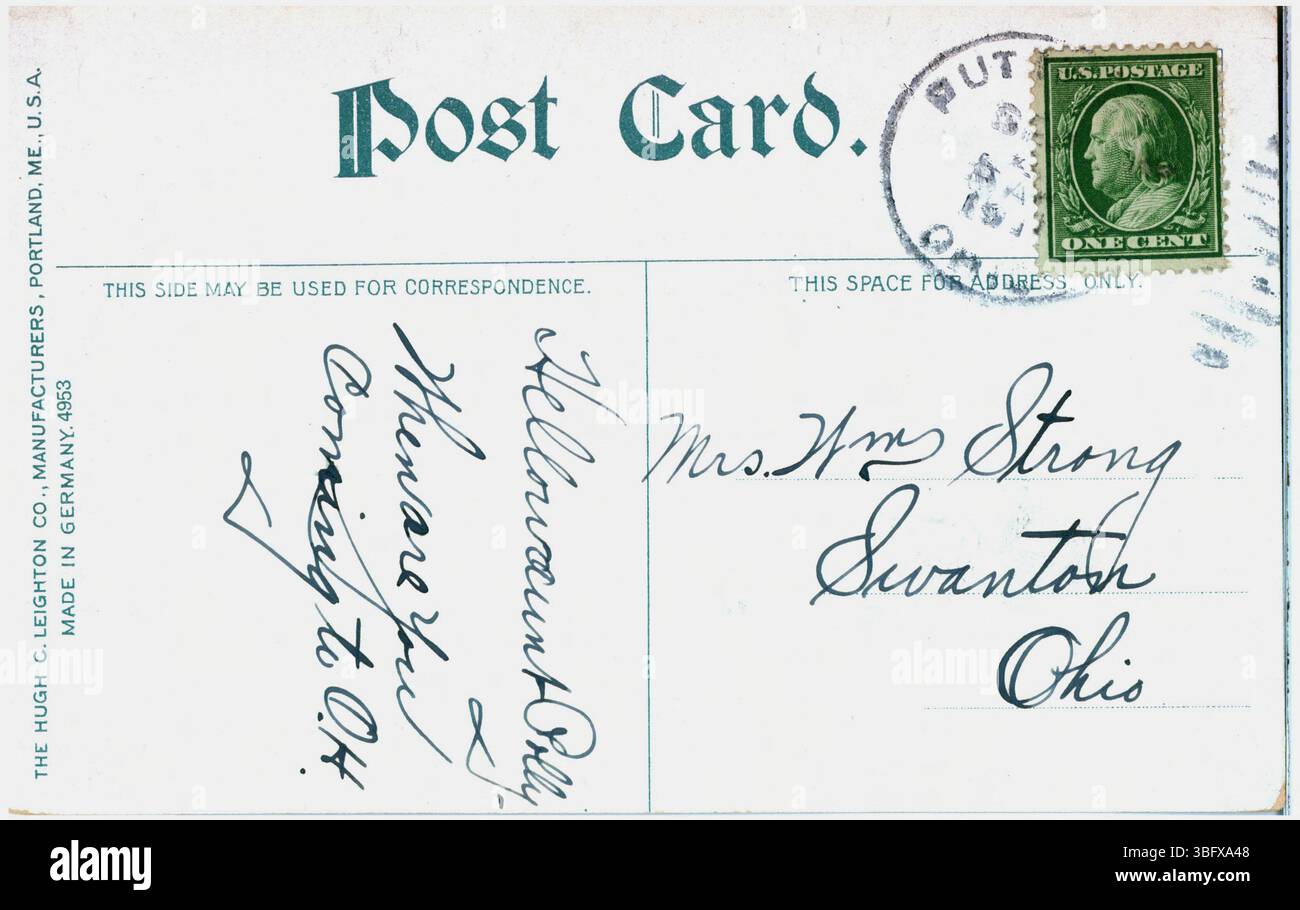 Post Card.
U.S. POSTAGE
ONE CENT
THIS SIDE MAY BE USED FOR CORRESPONDENCE.
THIS SPACE FOR ADDRESS ONLY.
Hellow aunt Polly
When are You
Coming to O.H.
Mrs. Wms Strong
Swanton
Ohio
THE HUGH C. LEIGHTON CO., MANUFACTURERS, PORTLAND, ME., U.S.A.
MADE IN GERMANY. 4953
alamy
Image ID: 3BFXA48
www.alamy.com